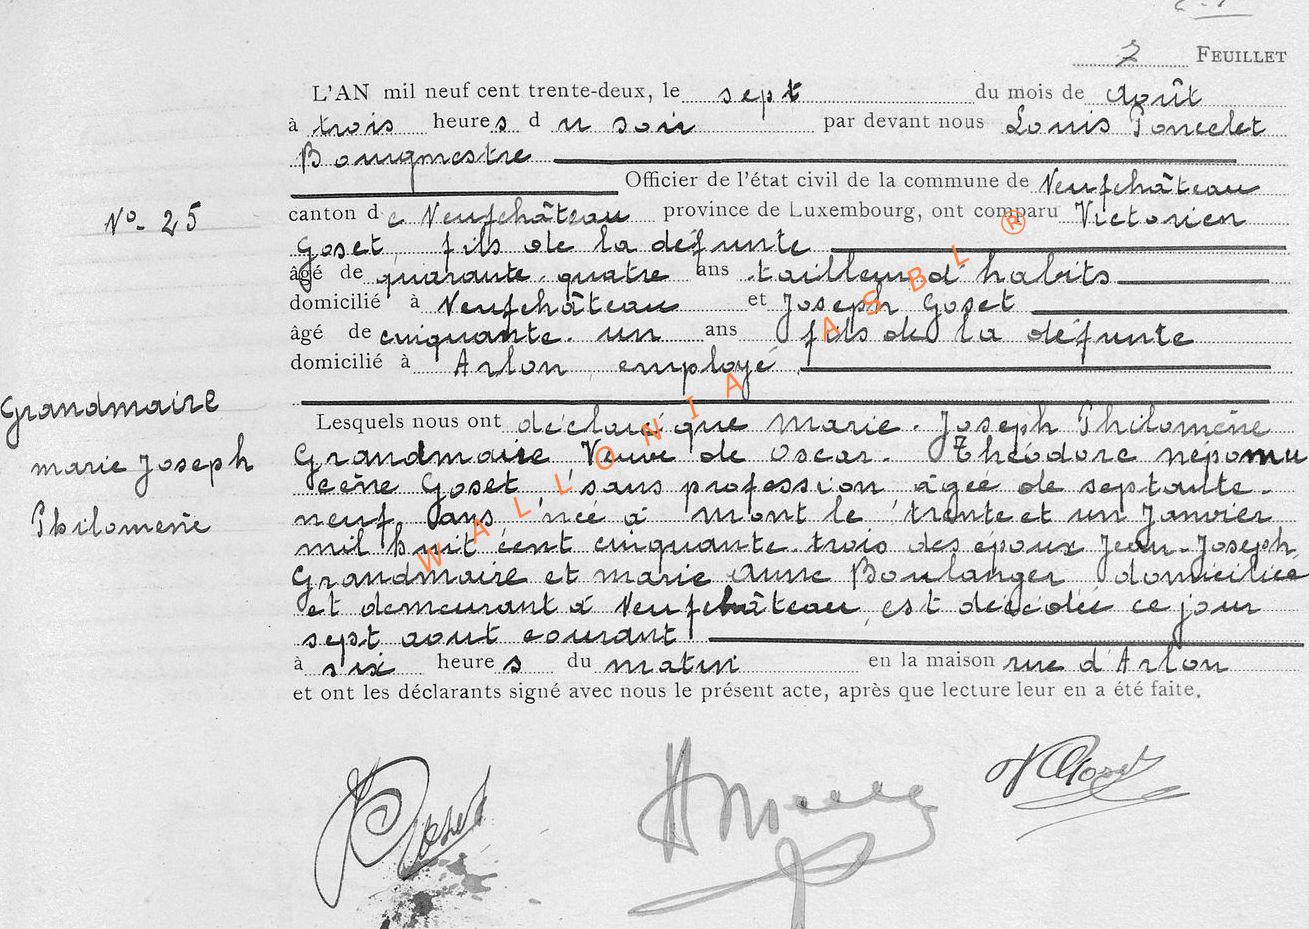 7 FEUILLET
L'AN mil neuf cent trente-deux, le sept du mois de Août
à trois heures du soir par devant nous Louis Poncelet
Bourgmestre
Officier de l'état civil de la commune de Neufchâteau
N° 25
canton de Neufchâteau province de Luxembourg, ont comparu Victorien
Goset, fils de la défunte
âgé de quarante-quatre ans tailleur d'habits
domicilié à Neufchâteau et Joseph Goset
âgé de cinquante-un ans fils de la défunte
domicilié à Arlon, employé
Grandmaire
marie Joseph
Philomène
Lesquels nous ont déclaré que marie-Joseph Philomène
Grandmaire Veuve de Oscar-Théodore nepomu
cène Goset, sans profession âgée de septante-
neuf ans, née à mont le trente et un Janvier
mil huit cent cinquante-trois des époux Jean-Joseph
Grandmaire et marie Anne Boulanger domiciliée
et demeurant à Neufchâteau, est décédée ce jour
sept août courant
à six heures du matin en la maison rue d'Arlon
et ont les déclarants signé avec nous le présent acte, après que lecture leur en a été faite.
Goset
V Goset
WALLONIA ASBL ®